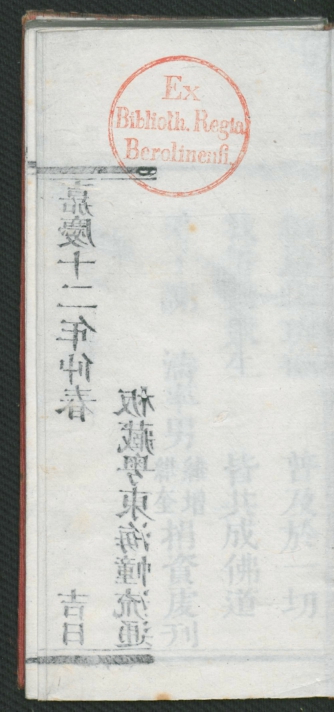 Ex
Biblioth. Regia
Berolinensi.
嘉慶十二年仲春 吉日
板藏粵東海幢流通
普及於一切
生 皆共成佛道
男 捐資敬刊